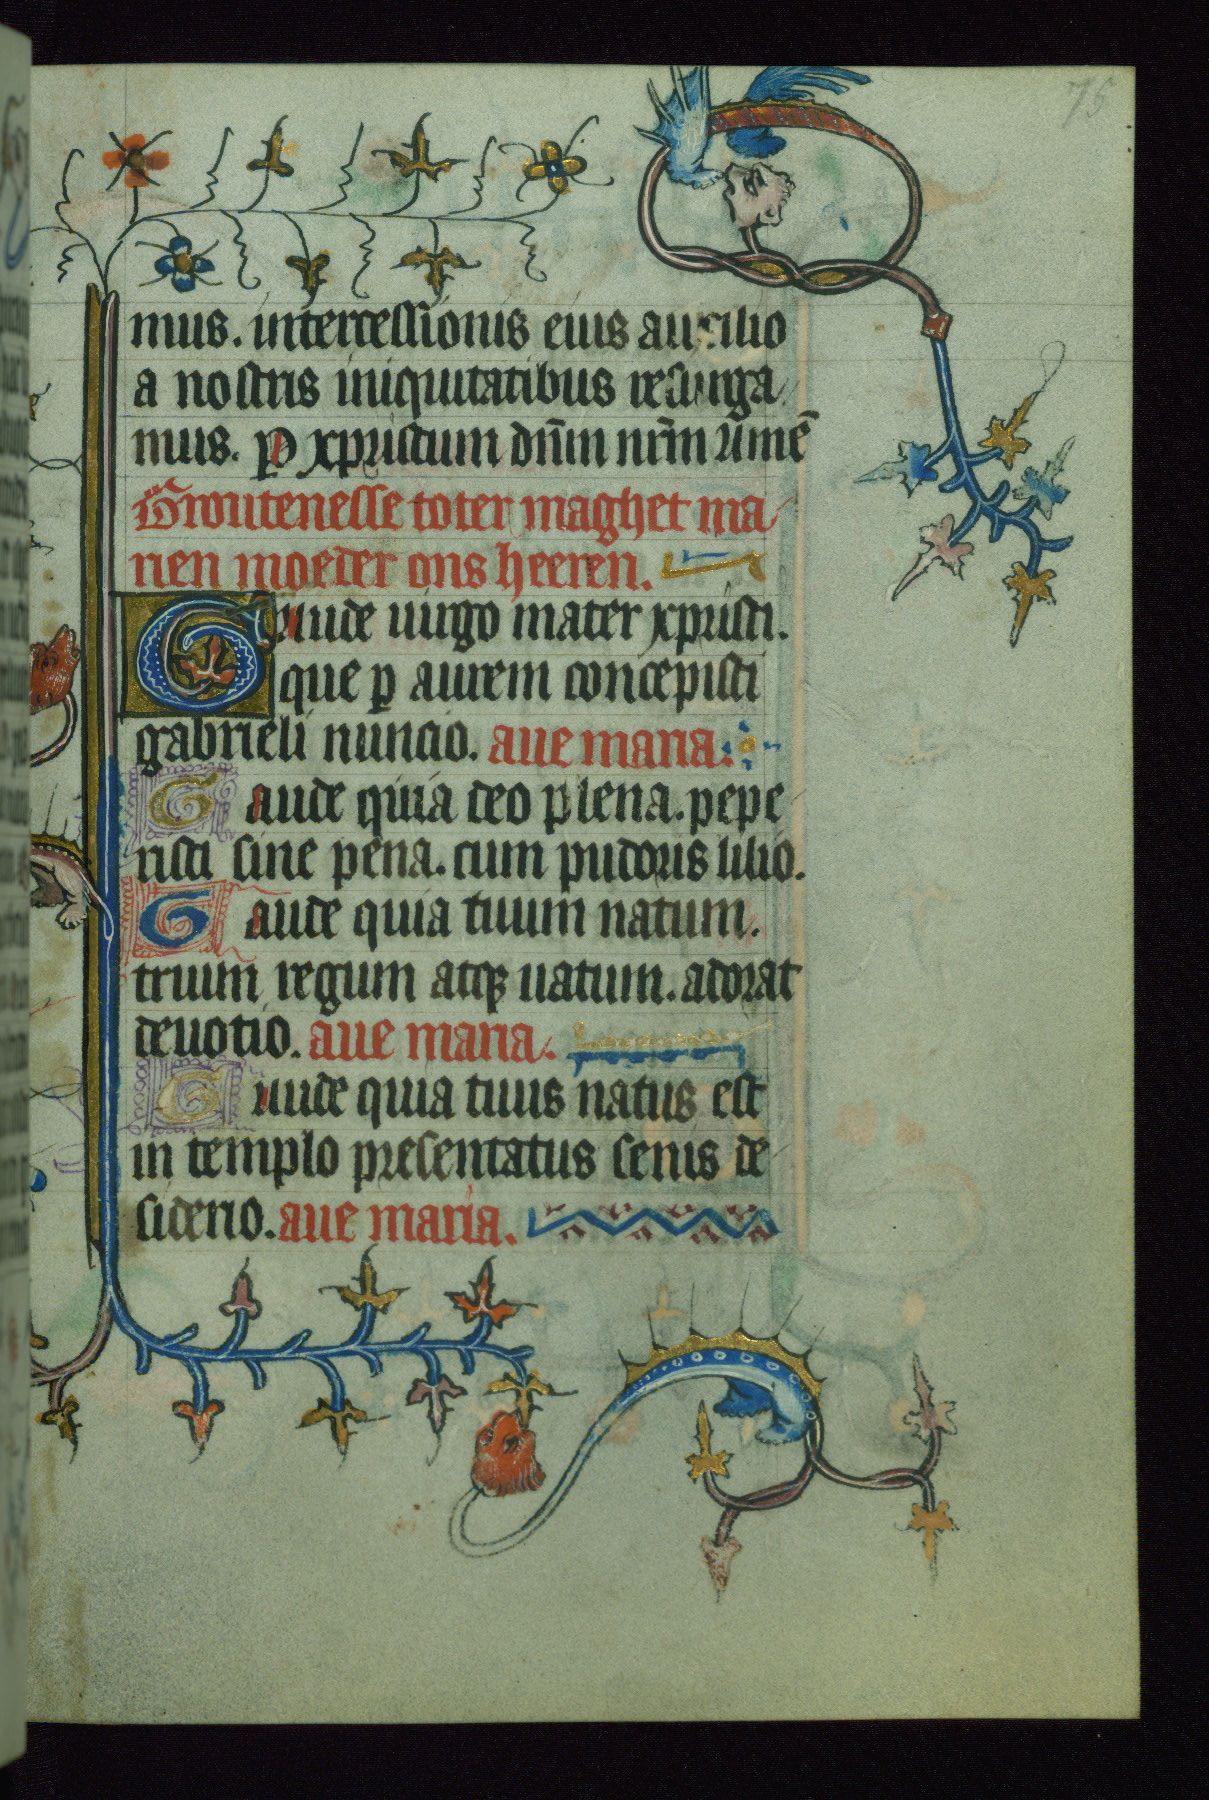 75
mus. intercessionis eius auxilio
a nostris iniquitatibus resurga
mus. p xpristum dn̄m nr̄m Amē
Groutenesse toter maghet ma
rien moeder ons heeren.
Gaude uirgo mater xpristi.
que p aurem concepisti
gabrieli nuncio. aue maria.
Gaude quia deo plena. pepe
risti sine pena. cum pudoris lilio.
Gaude quia tuum natum.
trium regum atq uatum. adorat
deuotio. aue maria.
Gaude quia tuus natus est
in templo presentatus senis de
siderio. aue maria.